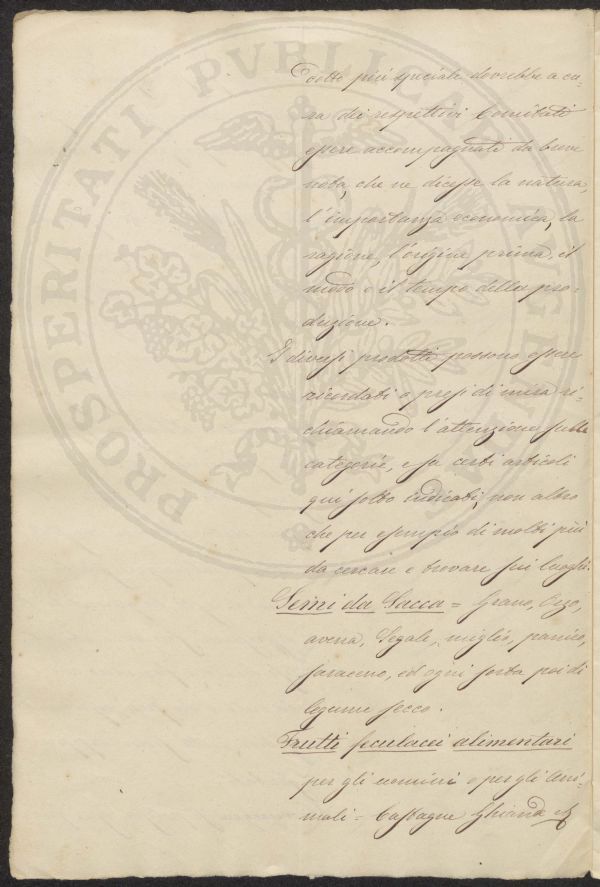 dotto più speciale dovrebbe a cu-
ra dei respettivi Comitati
essere accompagnati da breve
nota, che ne dicesse la natura,
l'importanza economica, la
ragione, l'origine prima, il
modo e il tempo della pro-
duzione.
I diversi prodotti possono essere
ricordati o presi di mira ri-
chiamando l'attenzione sulle
categorie, e su certi articoli
qui sotto indicati, non altro
che per esempio di molti più
da cercare e trovare sui luoghi.
Semi da Sacca = Grano, Orzo,
avena, Segale, miglio, panico,
saraceno, ed ogni sorta poi di
legume secco.
Frutti feculacei alimentari
per gli uomini o per gli ani-
mali = Castagne Ghiande
PROSPERITATI PVBLICAE AVGENDAE